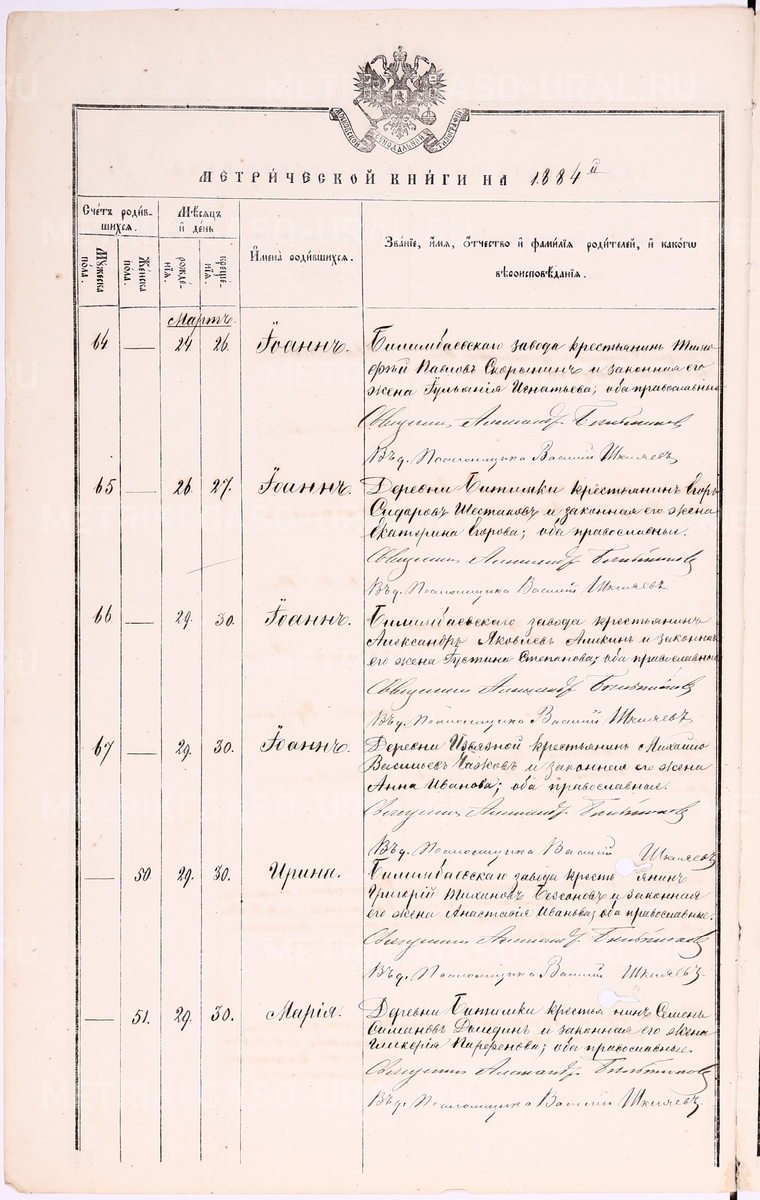 МЕТРИ́ЧЕСКОЙ КНИ́ГИ НА 1884й
Счётъ роди́в-
шихся.
Мѣсяцъ
и де́нь
Имена̀ роди́вшихся.
Зва́нїе, и́мя, о́тчество и фами́лїя роди́телей, и како́гѡ
вѣроисповѣ́данїя.
Му́жеска по́ла.
Же́нска по́ла.
рожде́нїя.
креще́нїя.
Мартъ
64 — 24 26. Їоаннъ. Билимбаевскаго завода крестьянинъ Тимо
фѣй Павловъ Скорынинъ и законная его
жена Гульанія Игнатьева; оба православные
Священникъ Александръ
И. д. Псаломщика Василій Шкляевъ
65 — 26 27. Їоаннъ. Деревни Битимки крестьянинъ Егоръ
Сидаровъ Шестаковъ и законная его жена
Екатерина Егорова; оба православные.
Священникъ Александръ
И. д. Псаломщика Василій Шкляевъ
66 — 29. 30. Їоаннъ. Билимбаевскаго завода крестьянинъ
Александръ Яковлевъ и законная
его жена Густина Степанова; оба православные
Священникъ Александръ
И. д. Псаломщика Василій Шкляевъ
67 — 29. 30. Їоаннъ. Деревни Извязной крестьянинъ Михаило
Васильевъ Чажковъ и законная его жена
Анна Иванова; оба православные.
Священникъ Александръ
И. д. Псаломщика Василій Шкляевъ
— 50 29. 30. Ирина. Билимбаевскаго завода крестьянинъ
Григорій Тихановъ и законная
его жена Анастасія Иванова; оба православные.
Священникъ Александръ
И. д. Псаломщика Василій Шкляевъ.
— 51. 29. 30. Марія. Деревни Битимки крестья нинъ Семенъ
Симановъ и законная его жена
Гликерія Парфенова; оба православные.
Священникъ Александръ
И. д. Псаломщика Василій Шкляевъ.